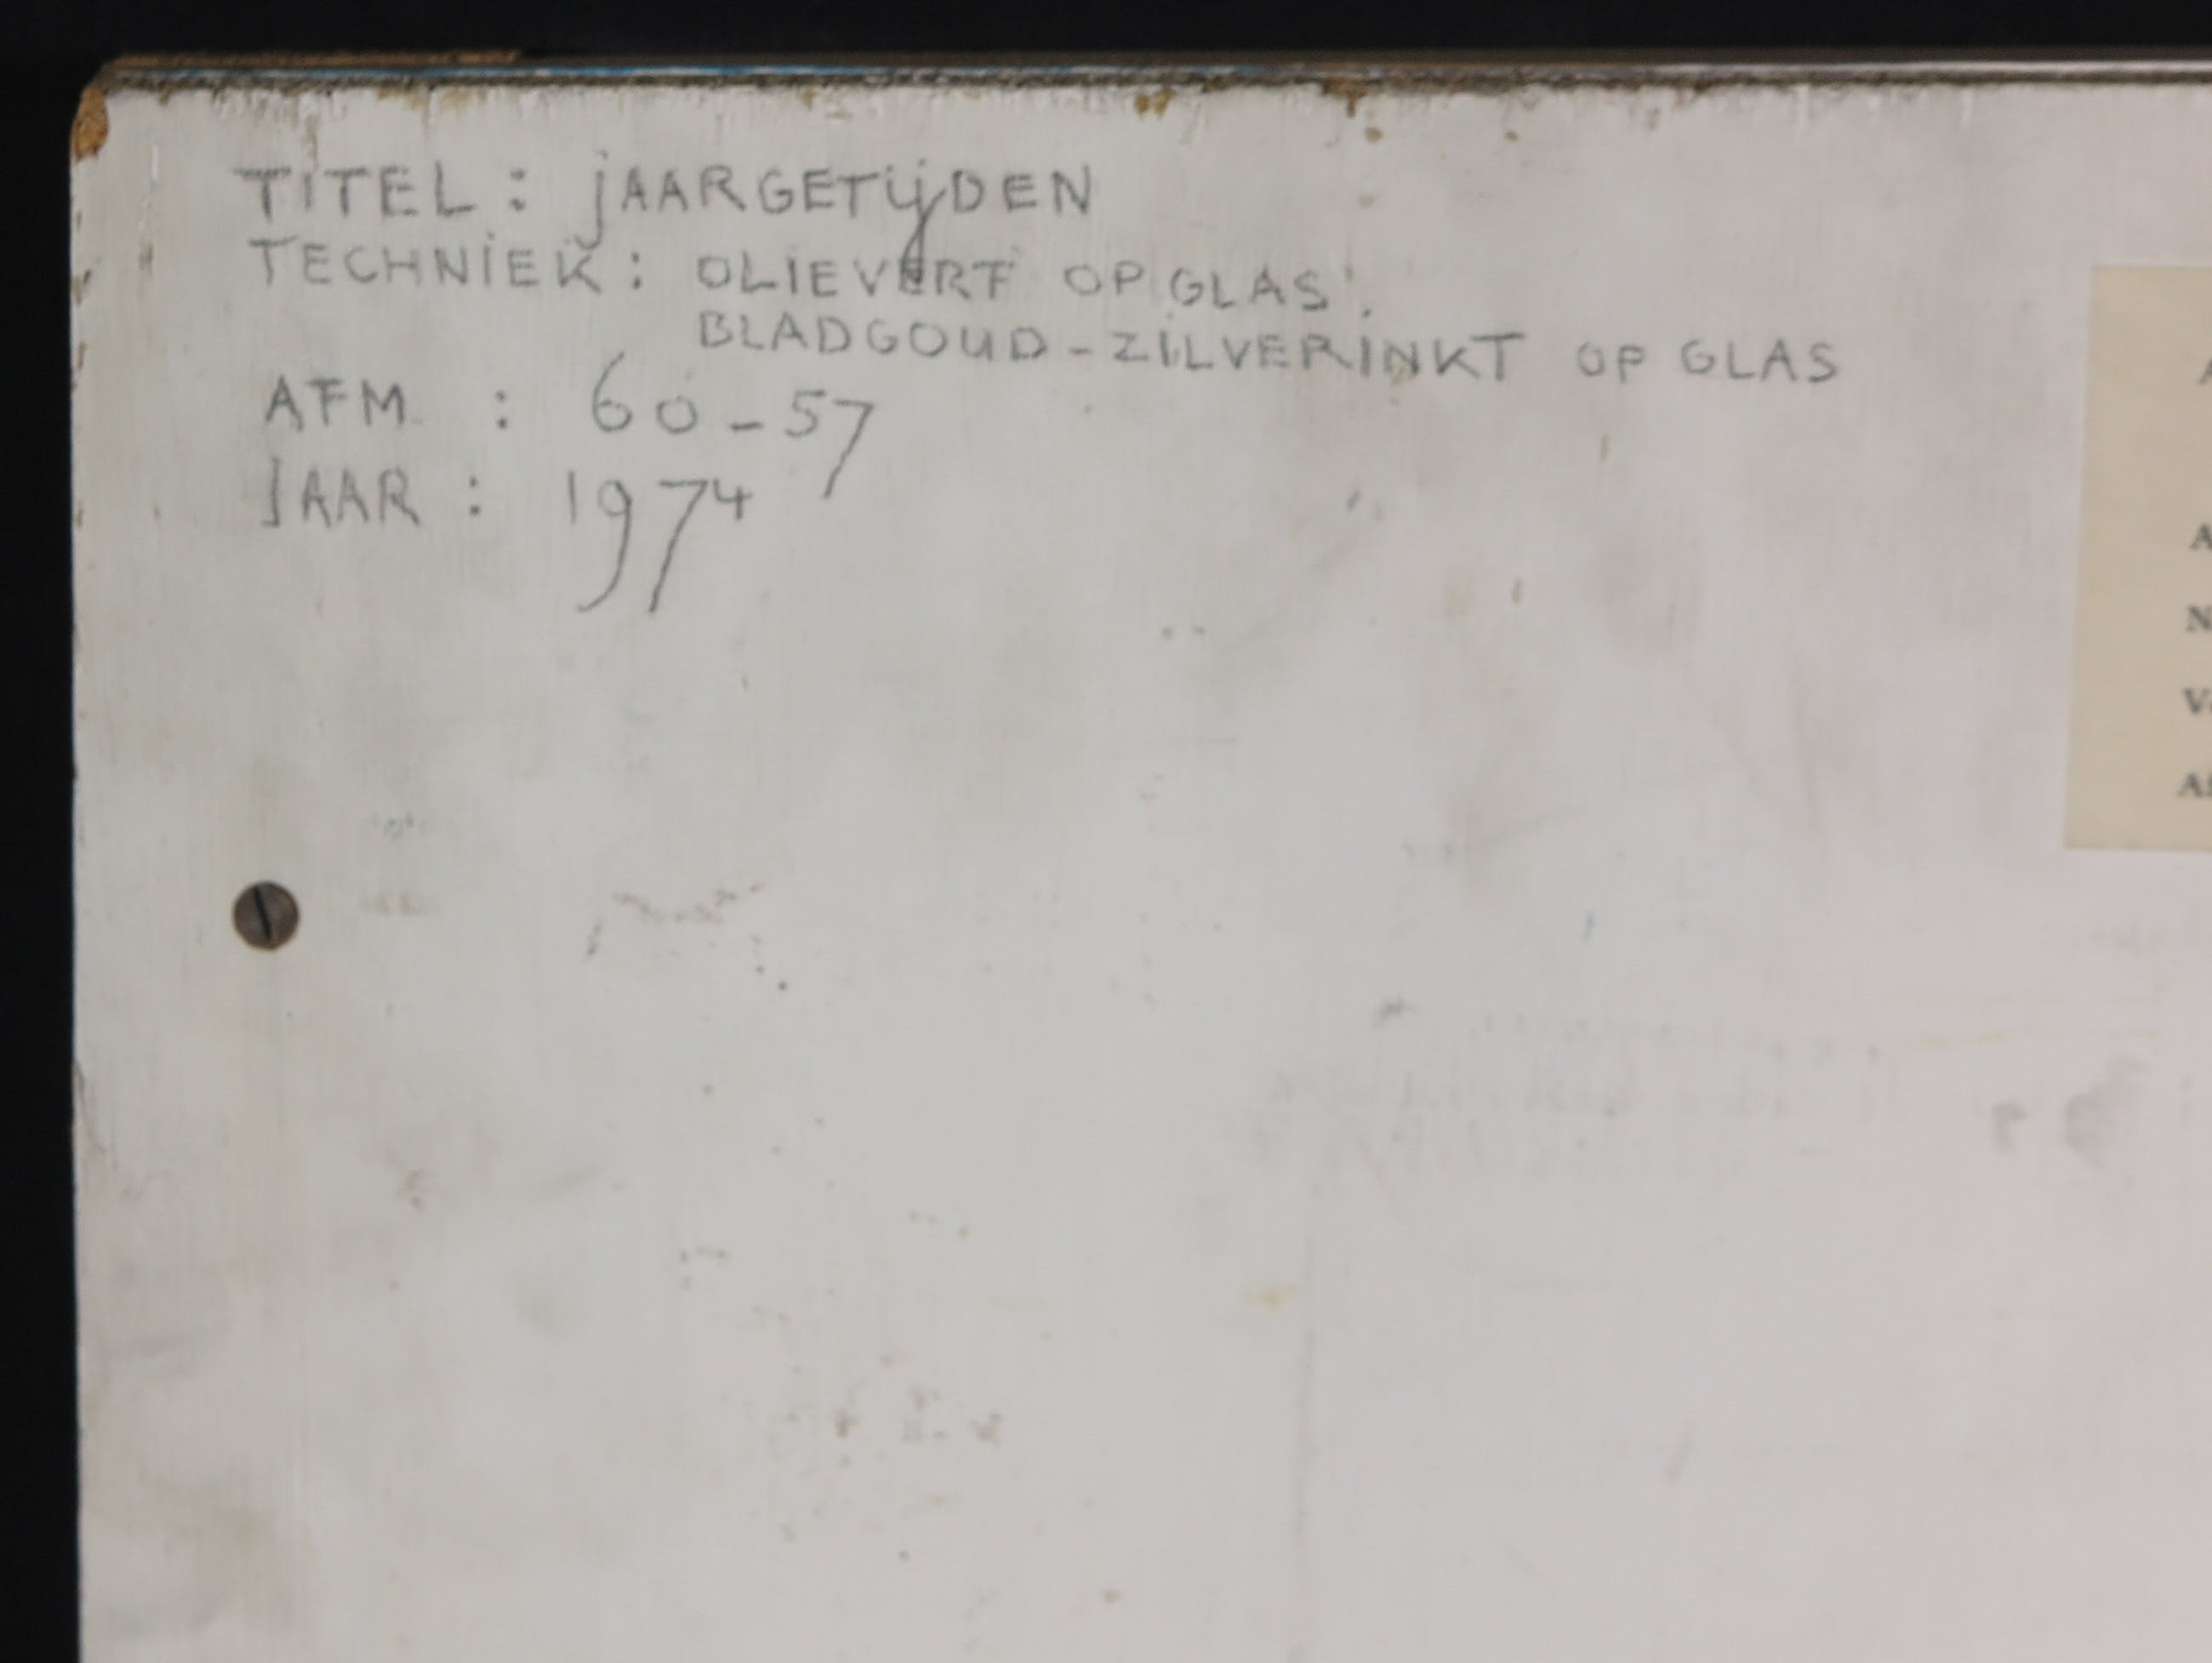 TITEL: jAARGETijDEN
TECHNIEK: OLIEVERF OP GLAS.
BLADGOUD-ZILVERINKT OP GLAS
AFM : 60-57
JAAR : 1974